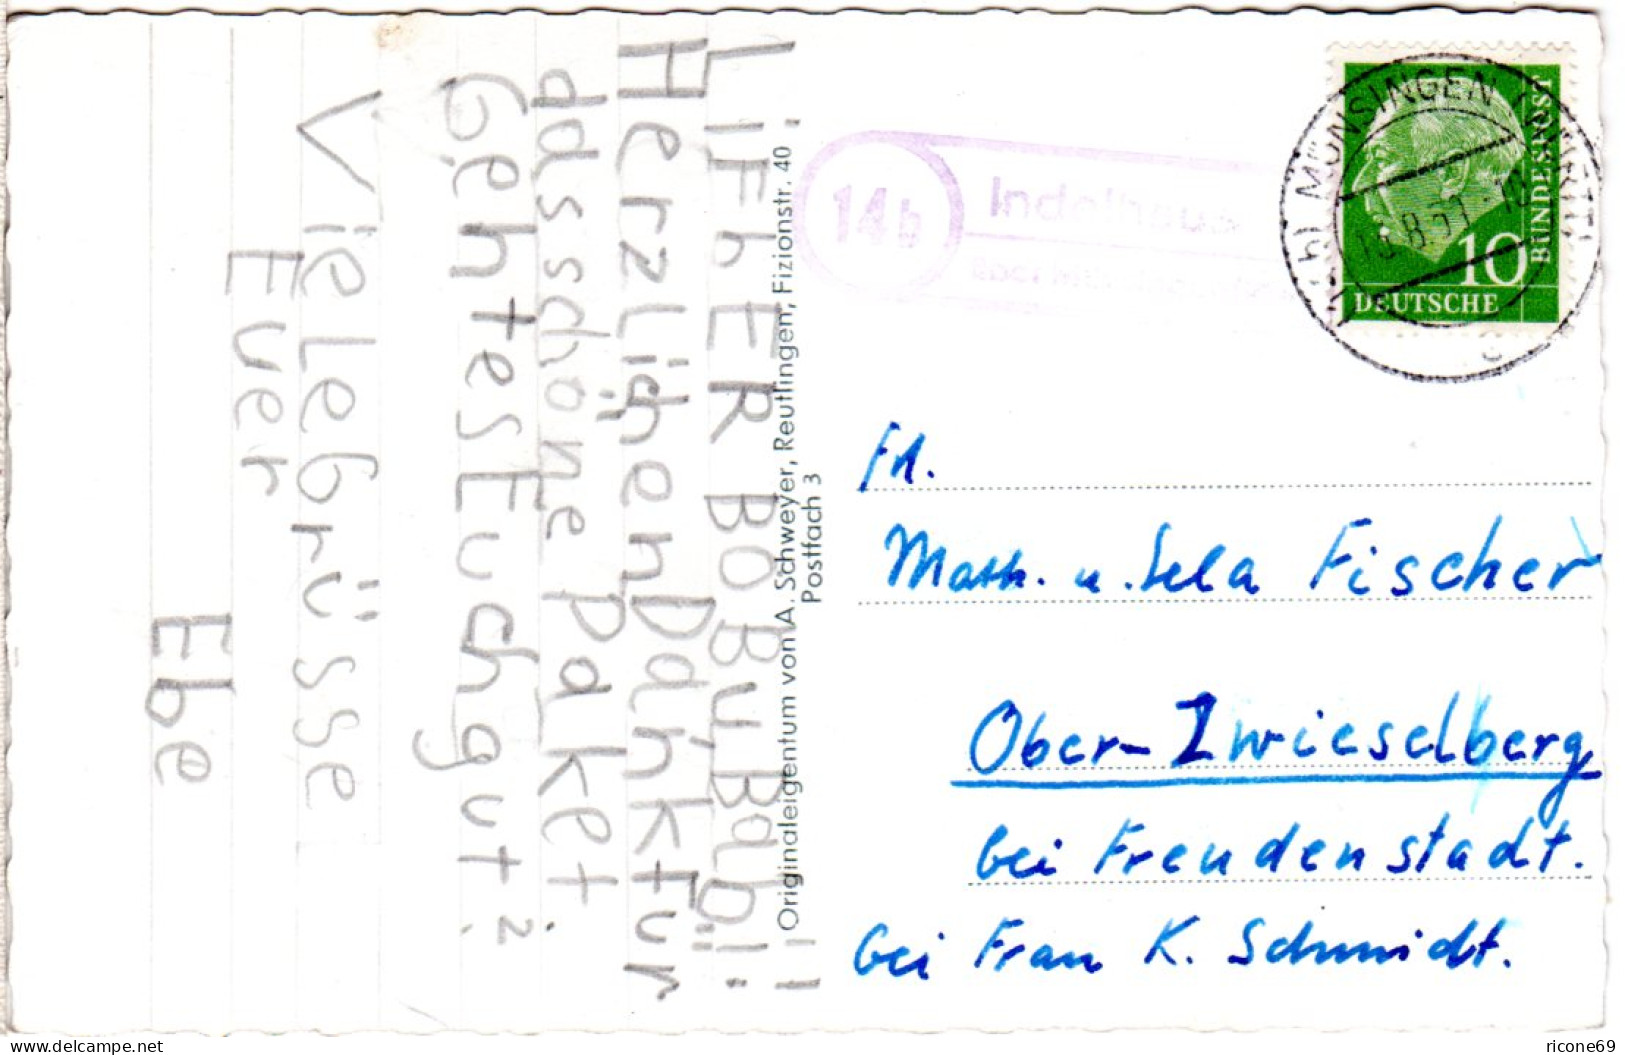 LiEbER BOBUBABI!!
HerzLichenDankFür
dasschöne Paket.
GehtesEuchgut?
VieLeGrüsse
Euer
Ebe
Originaleigentum von A. Schweyer, Reutlingen, Fizionstr. 40
Postfach 3
14b
Indelhausen
MÜNSINGEN (WÜRTT)
DEUTSCHE
BUNDESPOST
10
c
Math. u. Fischer
Ober-Zwieselberg
bei Freudenstadt.
bei Frau K. Schmidt.
www.delcampe.net
ricone69